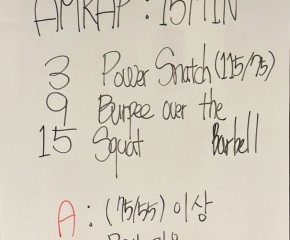 AMRAP : 15MIN
3 Power Snatch (115/75)
9 Burpee over the
15 Squat Barbell
A : (75/55) 이상